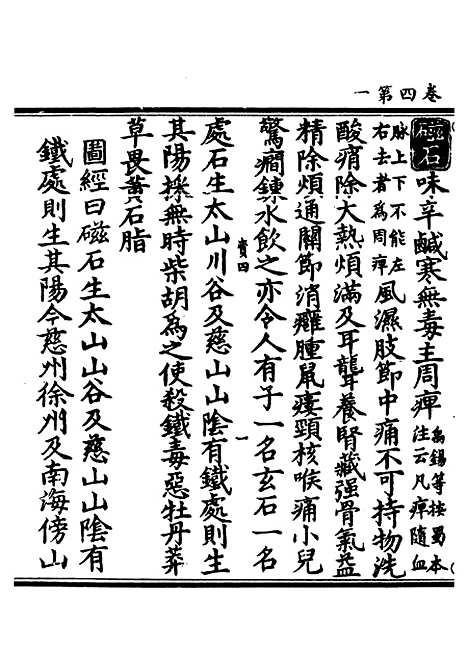 卷四第一
磁石味辛鹹寒無毒主周痺禹錫等按蜀本注云凡痺隨血
脉上下不能左右去者為周痺風濕肢節中痛不可持物洗
酸痟除大熱煩滿及耳聾養腎藏强骨氣益
精除煩通關節消癰腫鼠瘻頸核喉痛小兒
驚癇鍊水飲之亦令人有子一名玄石一名
處石生太山川谷及慈山山陰有鐵處則生
其陽採無時柴胡為之使殺鐵毒惡牡丹莽
草畏黄石脂
圖經曰磁石生太山山谷及慈山山陰有
鐵處則生其陽今慈州徐州及南海傍山